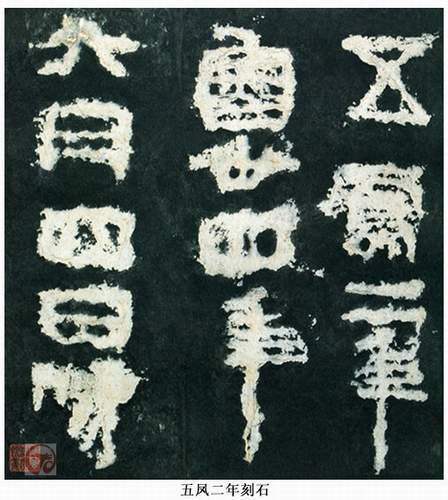 五鳳二年
魯卅四年
六月四日成
五风二年刻石